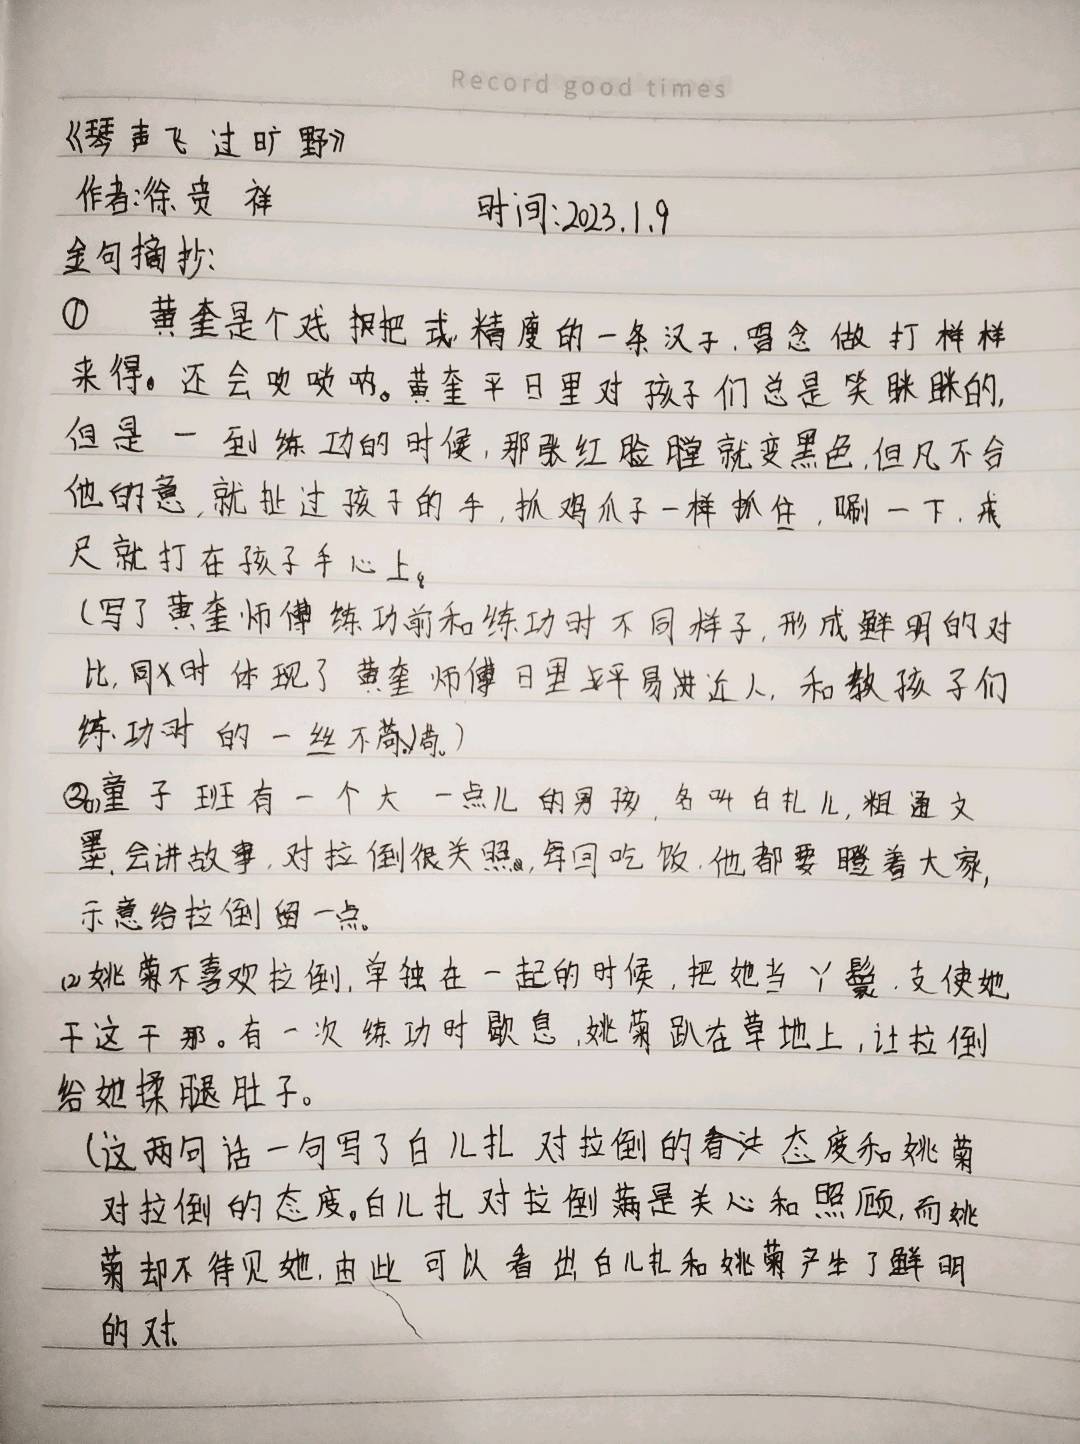 Record good times
《琴声飞过旷野》
作者:徐贵祥 时间:2023.1.9
金句摘抄:
① 黄奎是个戏 把式 精度的一条汉子,唱念做打样样
来得。还会吹唢呐。黄奎平日里对孩子们总是笑眯眯的,
但是一到练功的时候,那张红脸膛就变黑色,但凡不合
他的意,就扯过孩子的手,抓鸡爪子一样抓住,唰一下,戒
尺就打在孩子手心上。
(写了黄奎师傅练功前和练功时不同样子,形成鲜明的对
比,同时体现了黄奎师傅日里平易近人,和教孩子们
练功时的一丝不苟。)
②(1)童子班有一个大一点儿的男孩,名叫白扎儿,粗通文
墨,会讲故事,对拉倒很关照。每回吃饭,他都要瞪着大家,
示意给拉倒留一点。
(2)姚菊不喜欢拉倒,单独在一起的时候,把她当丫鬟,支使她
干这干那。有一次练功时歇息,姚菊趴在草地上,让拉倒
给她揉腿肚子。
(这两句话一句写了白儿扎对拉倒的态度和姚菊
对拉倒的态度。白儿扎对拉倒满是关心和照顾,而姚
菊却不待见她,由此可以看出白儿扎和姚菊产生了鲜明
的对